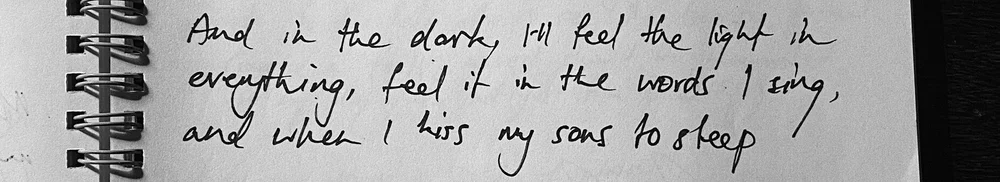 And in the dark, I'll feel the light in
everything, feel it in the words I sing,
and when I kiss my sons to sleep